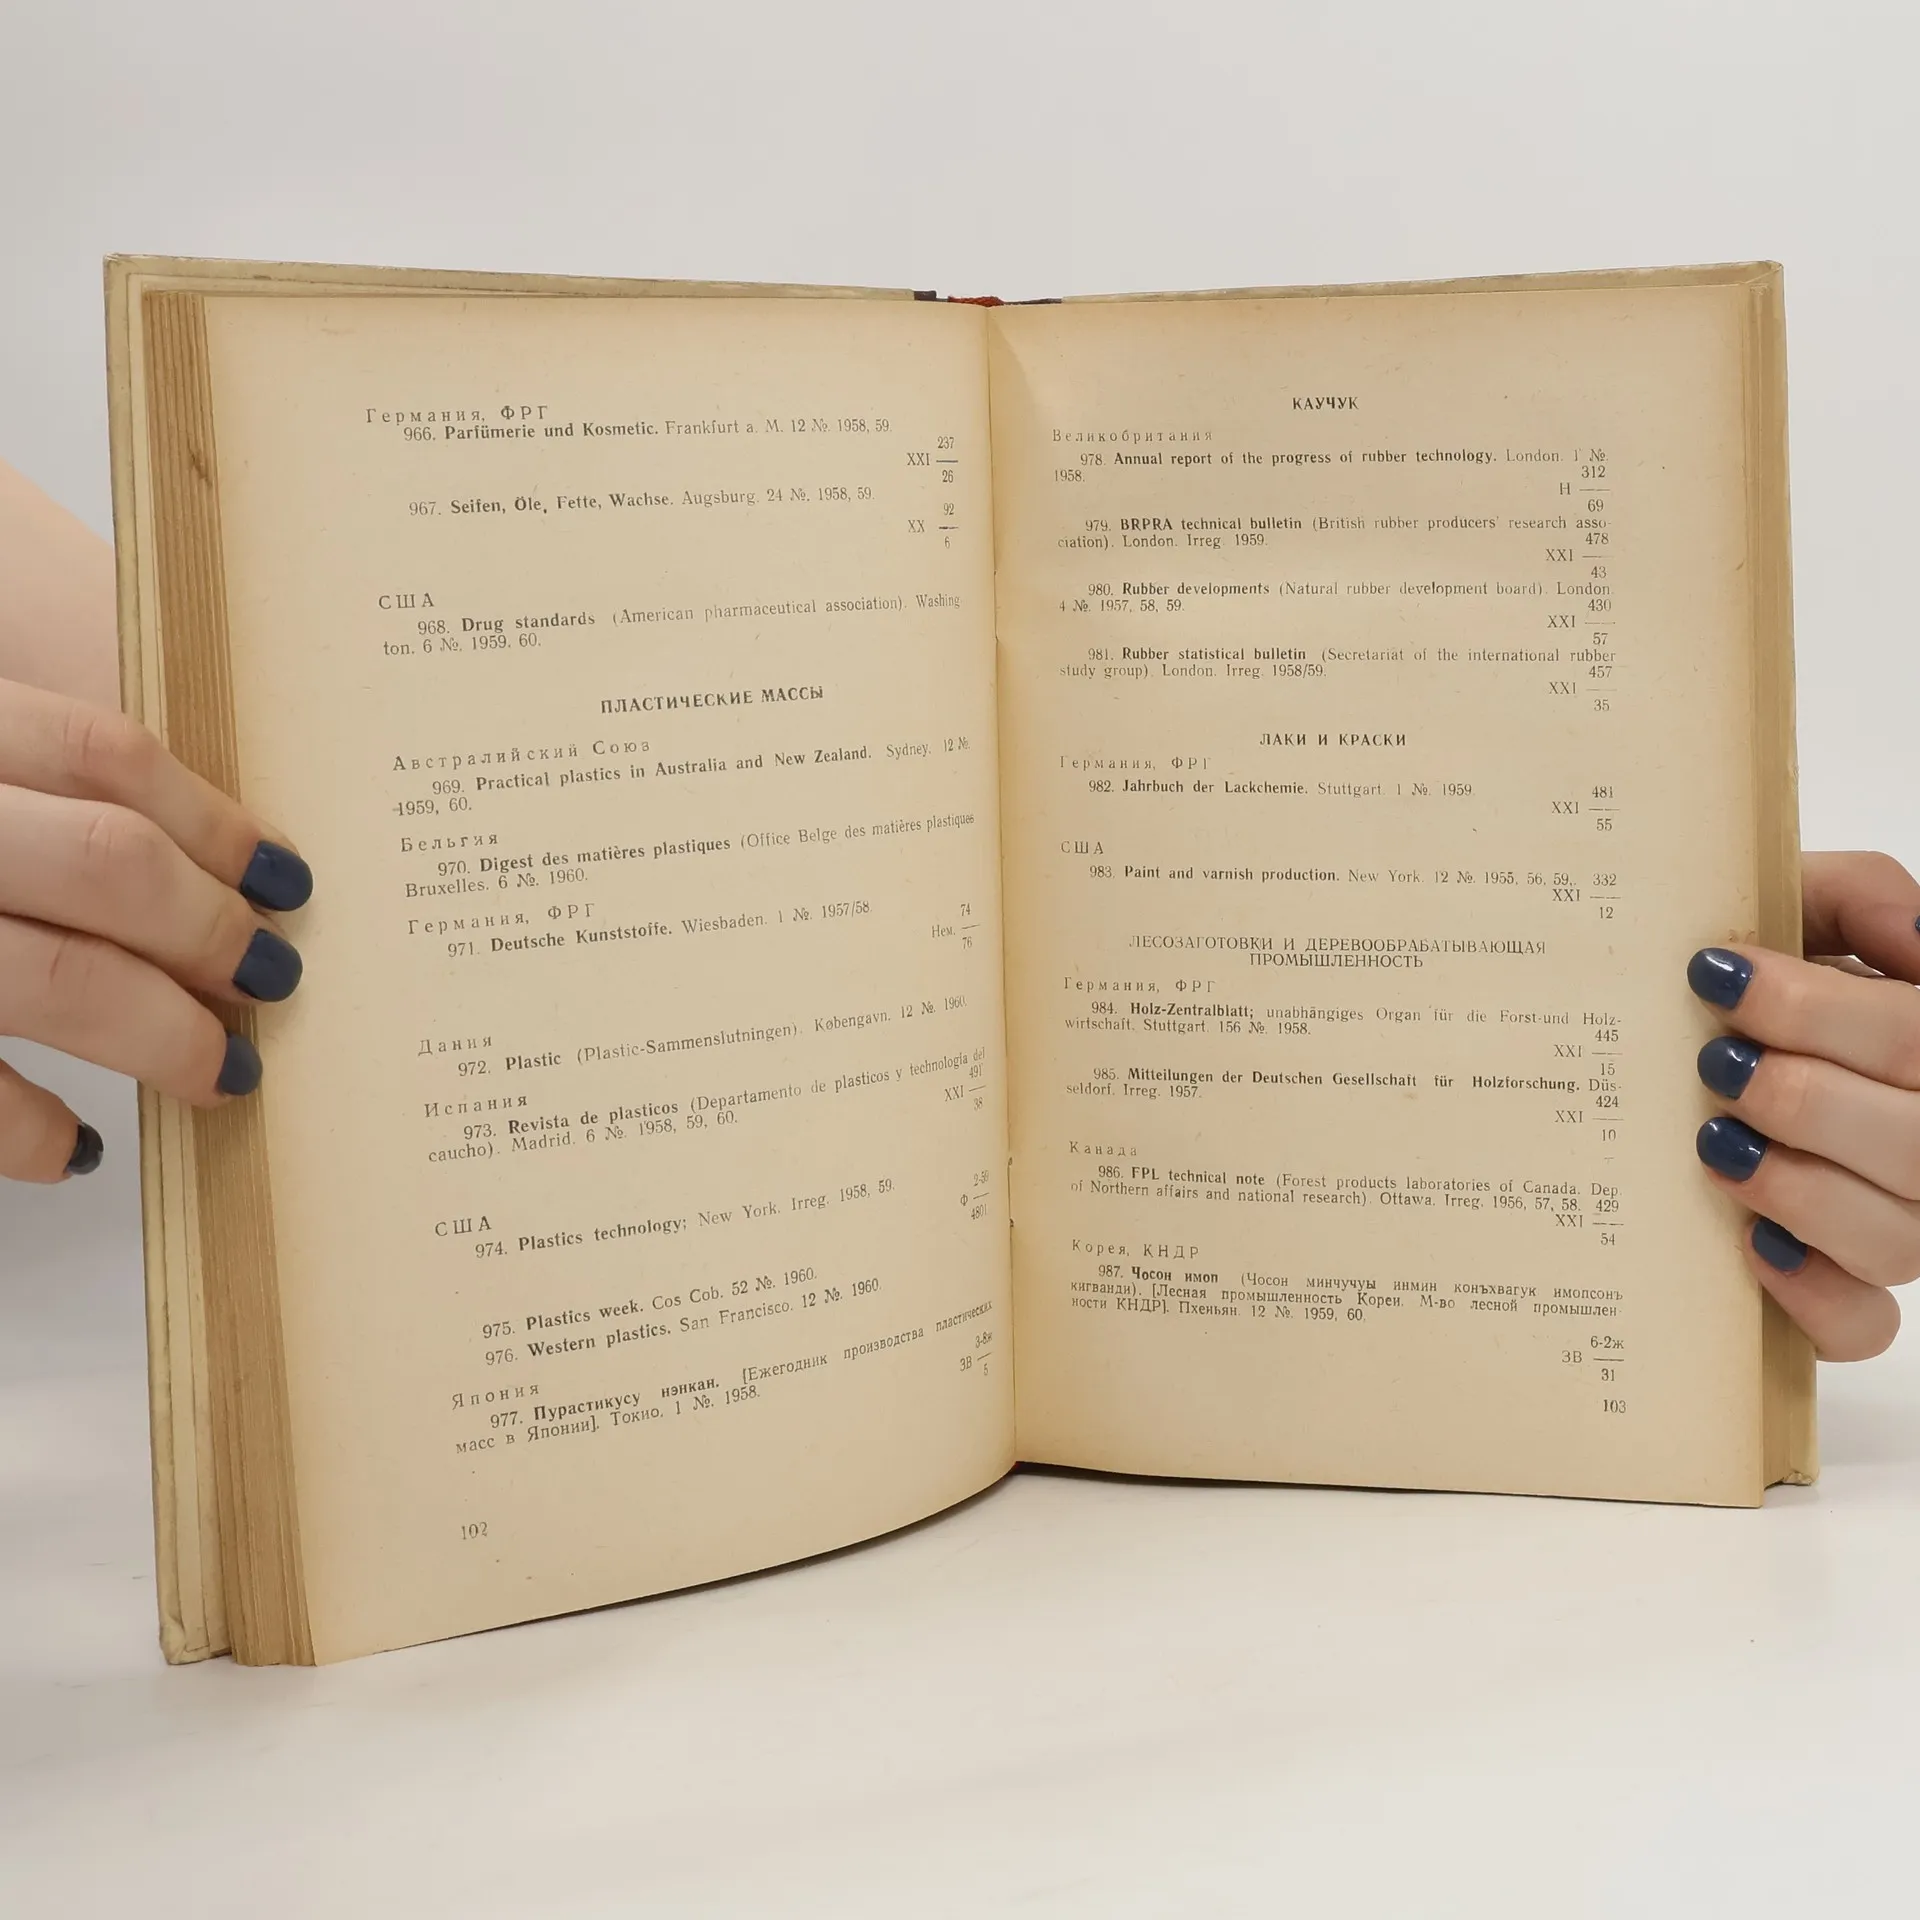 Германия, ФРГ
966. Parfümerie und Kosmetic. Frankfurt a. M. 12 №. 1958, 59.
237
XXI —
26
967. Seifen, Öle, Fette, Wachse. Augsburg. 24 №. 1958, 59.
92
XX —
6
США
968. Drug standards (American pharmaceutical association). Washing-
ton. 6 №. 1959, 60.
ПЛАСТИЧЕСКИЕ МАССЫ
Австралийский Союз
969. Practical plastics in Australia and New Zealand. Sydney. 12 №.
1959, 60.
Бельгия
970. Digest des matières plastiques (Office Belge des matières plastiques
Bruxelles. 6 №. 1960.
Германия, ФРГ
971. Deutsche Kunststoffe. Wiesbaden. 1 №. 1957/58.
74
Нем. —
76
Дания
972. Plastic (Plastic-Sammenslutningen). Købengavn. 12 №. 1960.
Испания
973. Revista de plasticos (Departamento de plasticos y technologia del
caucho). Madrid. 6 №. 1958, 59, 60.
491
XXI —
38
США
974. Plastics technology; New York. Irreg. 1958, 59.
2-50
Ф —
4801
975. Plastics week. Cos Cob. 52 №. 1960.
976. Western plastics. San Francisco. 12 №. 1960.
Япония
977. Пурастикусу нэнкан. [Ежегодник производства пластических
масс в Японии]. Токио. 1 №. 1958.
3-8ж
ЗВ —
5
102
КАУЧУК
Великобритания
978. Annual report of the progress of rubber technology. London. 1 №.
1958.
312
Н —
69
979. BRPRA technical bulletin (British rubber producers' research asso-
ciation). London. Irreg. 1959.
478
XXI —
43
980. Rubber developments (Natural rubber development board). London.
4 №. 1957, 58, 59.
430
XXI —
57
981. Rubber statistical bulletin (Secretariat of the international rubber
study group). London. Irreg. 1958/59.
457
XXI —
35
ЛАКИ И КРАСКИ
Германия, ФРГ
982. Jahrbuch der Lackchemie. Stuttgart. 1 №. 1959.
481
XXI —
55
США
983. Paint and varnish production. New York. 12 №. 1955, 56, 59,.
332
XXI —
12
ЛЕСОЗАГОТОВКИ И ДЕРЕВООБРАБАТЫВАЮЩАЯ
ПРОМЫШЛЕННОСТЬ
Германия, ФРГ
984. Holz-Zentralblatt; unabhängiges Organ für die Forst-und Holz-
wirtschaft. Stuttgart. 156 №. 1958.
445
XXI —
15
985. Mitteilungen der Deutschen Gesellschaft für Holzforschung. Düs-
seldorf. Irreg. 1957.
424
XXI —
10
Канада
986. FPL technical note (Forest products laboratories of Canada. Dep.
of Northern affairs and national research). Ottawa. Irreg. 1956, 57, 58.
429
XXI —
54
Корея, КНДР
987. Чосон имоп (Чосон минчучуы инмин конъхвагук имопсонъ
кигванди). [Лесная промышленность Кореи. М-во лесной промышлен-
ности КНДР]. Пхеньян. 12 №. 1959, 60.
6-2ж
ЗВ —
31
103